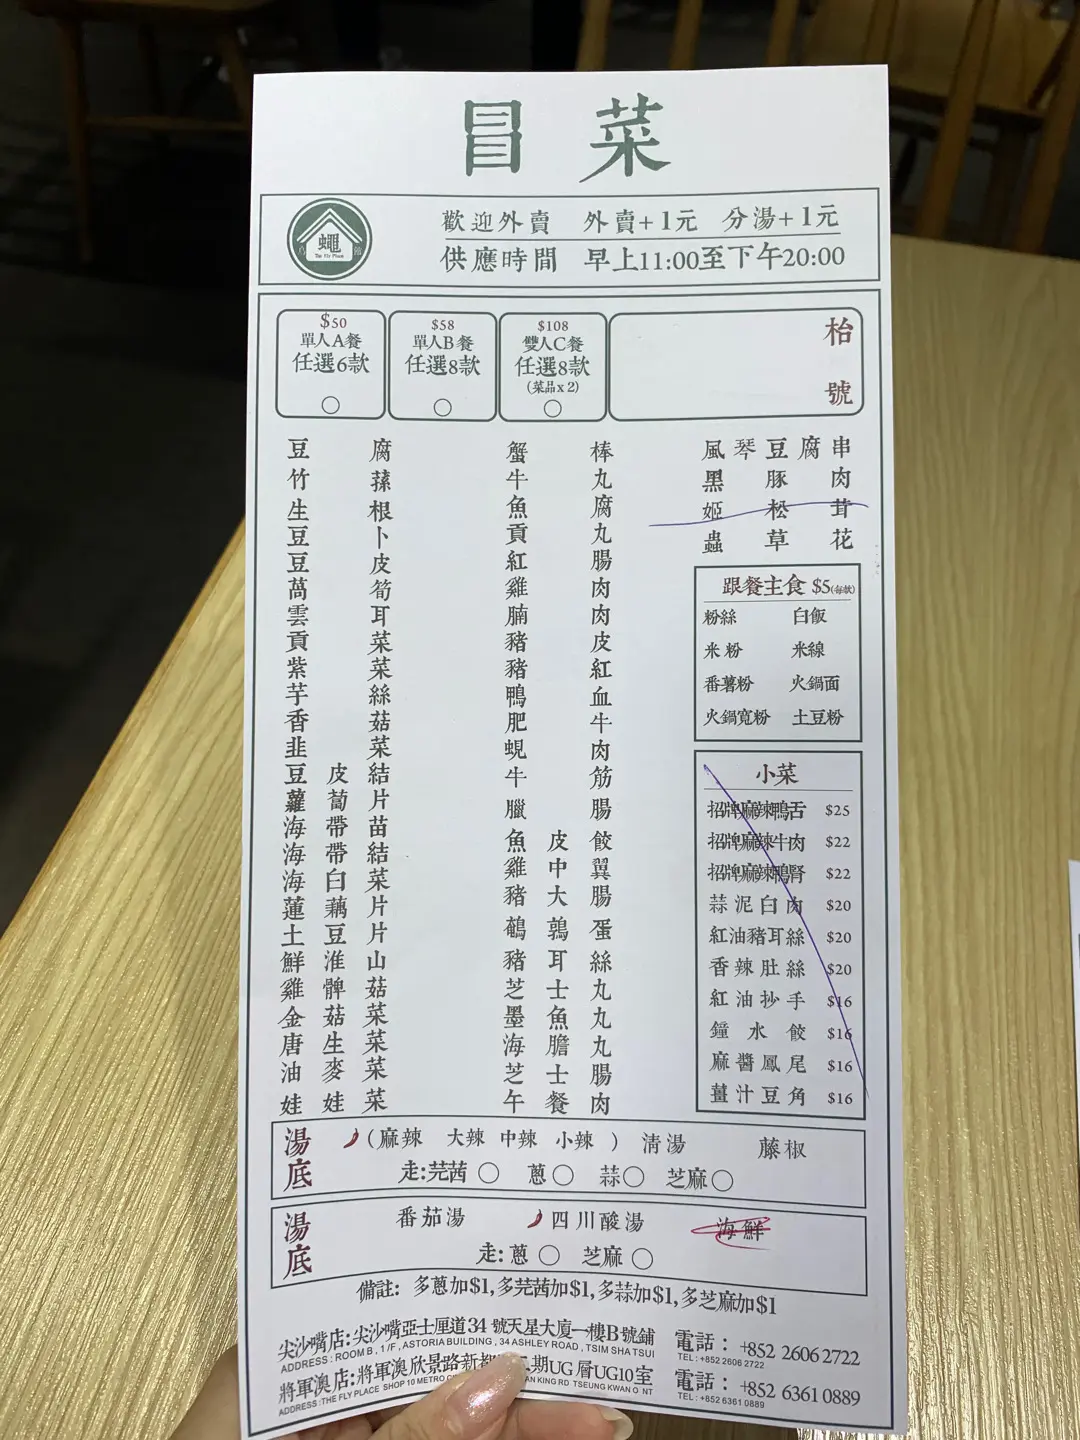 冒菜
蠅
The Fly Place
歡迎外賣 外賣+1元 分湯+1元
供應時間 早上11:00至下午20:00
$50
單人A餐
任選6款
$58
單人B餐
任選8款
$108
雙人C餐
任選8款
(菜品x2)
枱號
豆腐
竹蓀
生根
豆卜
豆皮
萵筍
雲耳
貢菜
紫菜
芋絲
香菇
韭菜
豆皮結
蘿蔔片
海帶苗
海帶結
海白菜
蓮藕片
土豆片
鮮淮山
雞髀菇
金菇菜
唐生菜
油麥菜
娃娃菜
蟹棒
牛丸
魚腐
貢丸
紅腸
雞肉
腩肉
豬皮
豬紅
鴨血
肥牛
蜆肉
牛筋
臘腸
魚皮餃
雞中翼
豬大腸
鵪鶉蛋
豬耳絲
芝士丸
墨魚丸
海膽丸
芝士腸
午餐肉
風琴豆腐串
黑豚肉
姬松茸
蟲草花
跟餐主食 $5(每款)
粉絲 白飯
米粉 米線
番薯粉 火鍋面
火鍋寬粉 土豆粉
小菜
招牌麻辣鴨舌 $25
招牌麻辣牛肉 $22
招牌麻辣鴨腎 $22
蒜泥白肉 $20
紅油豬耳絲 $20
香辣肚絲 $20
紅油抄手 $16
鐘水餃 $16
麻醬鳳尾 $16
薑汁豆角 $16
湯底 (麻辣 大辣 中辣 小辣) 清湯 藤椒
走:芫茜 蔥 蒜 芝麻
湯底 番茄湯 四川酸湯 海鮮
走:蔥 芝麻
備註: 多蔥加$1,多芫茜加$1,多蒜加$1,多芝麻加$1
尖沙嘴店:尖沙嘴亞士厘道34號天星大廈一樓B號鋪 電話:+852 2606 2722
ADDRESS:ROOM B, 1/F, ASTORIA BUILDING, 34 ASHLEY ROAD, TSIM SHA TSUI TEL:+852 2606 2722
將軍澳店:將軍澳欣景路新都 期UG層UG10室 電話:+852 6361 0889
ADDRESS:THE FLY PLACE SHOP 10 METRO KING RD TSEUNG KWAN O NT TEL:+852 6361 0889